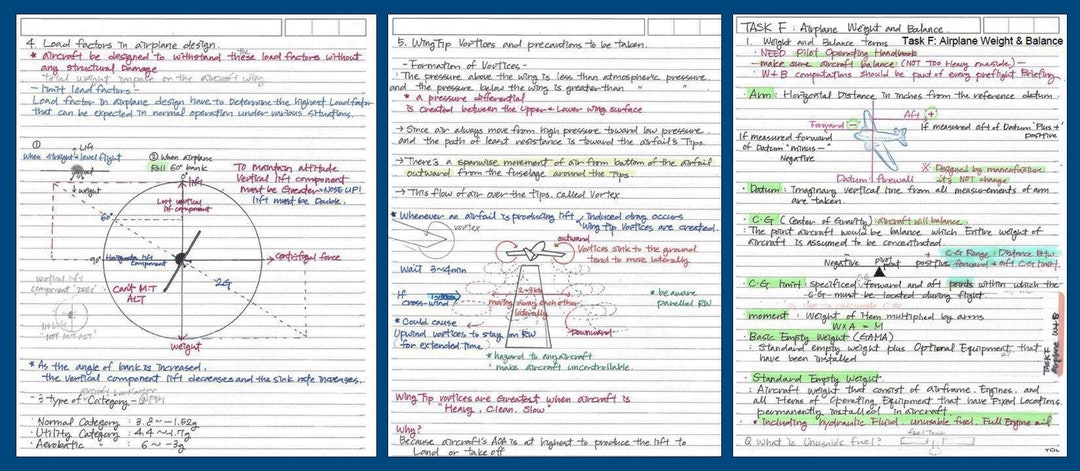 4. Load factors in airplane design.
* aircraft be designed to withstand these load factors without
any structural damage
- limit load factors -
Load factor in airplane design have to Determine the highest Loadfactor
that can be expected in normal operation under various situations.
①
When straight & level flight
Lift
weight
② When airplane
Roll 60° bank
0°
lift
To maintain attitude
Vertical lift component
must be Greater - NOSE UP!
lift must be Double.
Lost vertical
lift component
60°
90°
Horizontal lift
component
Centrifugal force
Can't MT
ALT
2G
weight
* As the angle of bank is increased,
the vertical component lift decreases and the sink rate increases.
- 3 type of Category -
· Normal Category : 3.8 ~ -1.52g
· Utility Category : 4.4 ~ -1.77g
· Aerobatic " : 6 ~ -3g
5. WingTip Vortices and precautions to be taken.
- Formation of Vortices -
: The pressure above the wing is less than atmospheric pressure
and the pressure below the wing is greater than " "
* a pressure differential
is created between the Upper & Lower wing surface
→ Since air always move from high pressure toward low pressure
and the path of least resistance is toward the airfoil's Tips.
→ There's a spanwise movement of air from bottom of the airfoil
outward from the fuselage around the Tips.
→ This flow of air over the tips. called Vortex.
* Whenever an airfoil is producing lift, induced drag occurs
Wing tip Vortices are created.
vortex
outward
Vortices sink to the ground
tend to move laterally
Wait 3~4min
If
cross-wind
2~3kts
moving away each other
laterally
* be aware
parallel RW
* Could cause
Upwind vortices to stay on RW
(for extended time)
Downward
* hazard to any aircraft
: make aircraft uncontrollable.
Wing Tip vortices are Greatest when aircraft is
"Heavy, Clean, Slow"
Why?
Because aircraft's AOA is at highest to produce the lift to
Land or take off
TASK F : Airplane Weight and Balance
Task F: Airplane Weight & Balance
1. Weight and Balance Terms
· NEED Pilot Operating Handbook
- make sure aircraft balance (NOT TOO Heavy oneside) -
· W+B computations should be part of every preflight Briefing.
Arm : Horizontal Distance in inches from the reference datum.
Forward -
Aft +
If measured aft of Datum "Plus +"
positive
If measured forward
of Datum "minus -"
Negative
Datum: firewall
※ Designed by manufacture
it's NOT change
· Datum : Imaginary vertical line from all measurements of arm
are taken.
· C.G (Center of Gravity) : aircraft will balance
: The point aircraft would be balance which Entire weight of
aircraft is assumed to be concentrated.
-
Negative
pivot
point
+
positive
C.G Range : Distance Btw
forward + aft C.G limit.
· C.G limit : specificed forward and aft points within which the
C.G must be located during flight.
moment : Weight of Item multiplied by arms
WxA = M
· Basic Empty Weight (GAMA)
: Standard empty weight plus Optional Equipment that
have been installed
· Standard Empty Weight
: Aircraft weight that consist of airframe, Engines, and
all Items of Operating Equipment that have Fixed Locations,
permanently installed in aircraft.
* Including hydraulic Fluid, unusable fuel, Full Engine oil
Q. What is Unusable fuel?
fuel Tank
TASK F
Airplane W+B